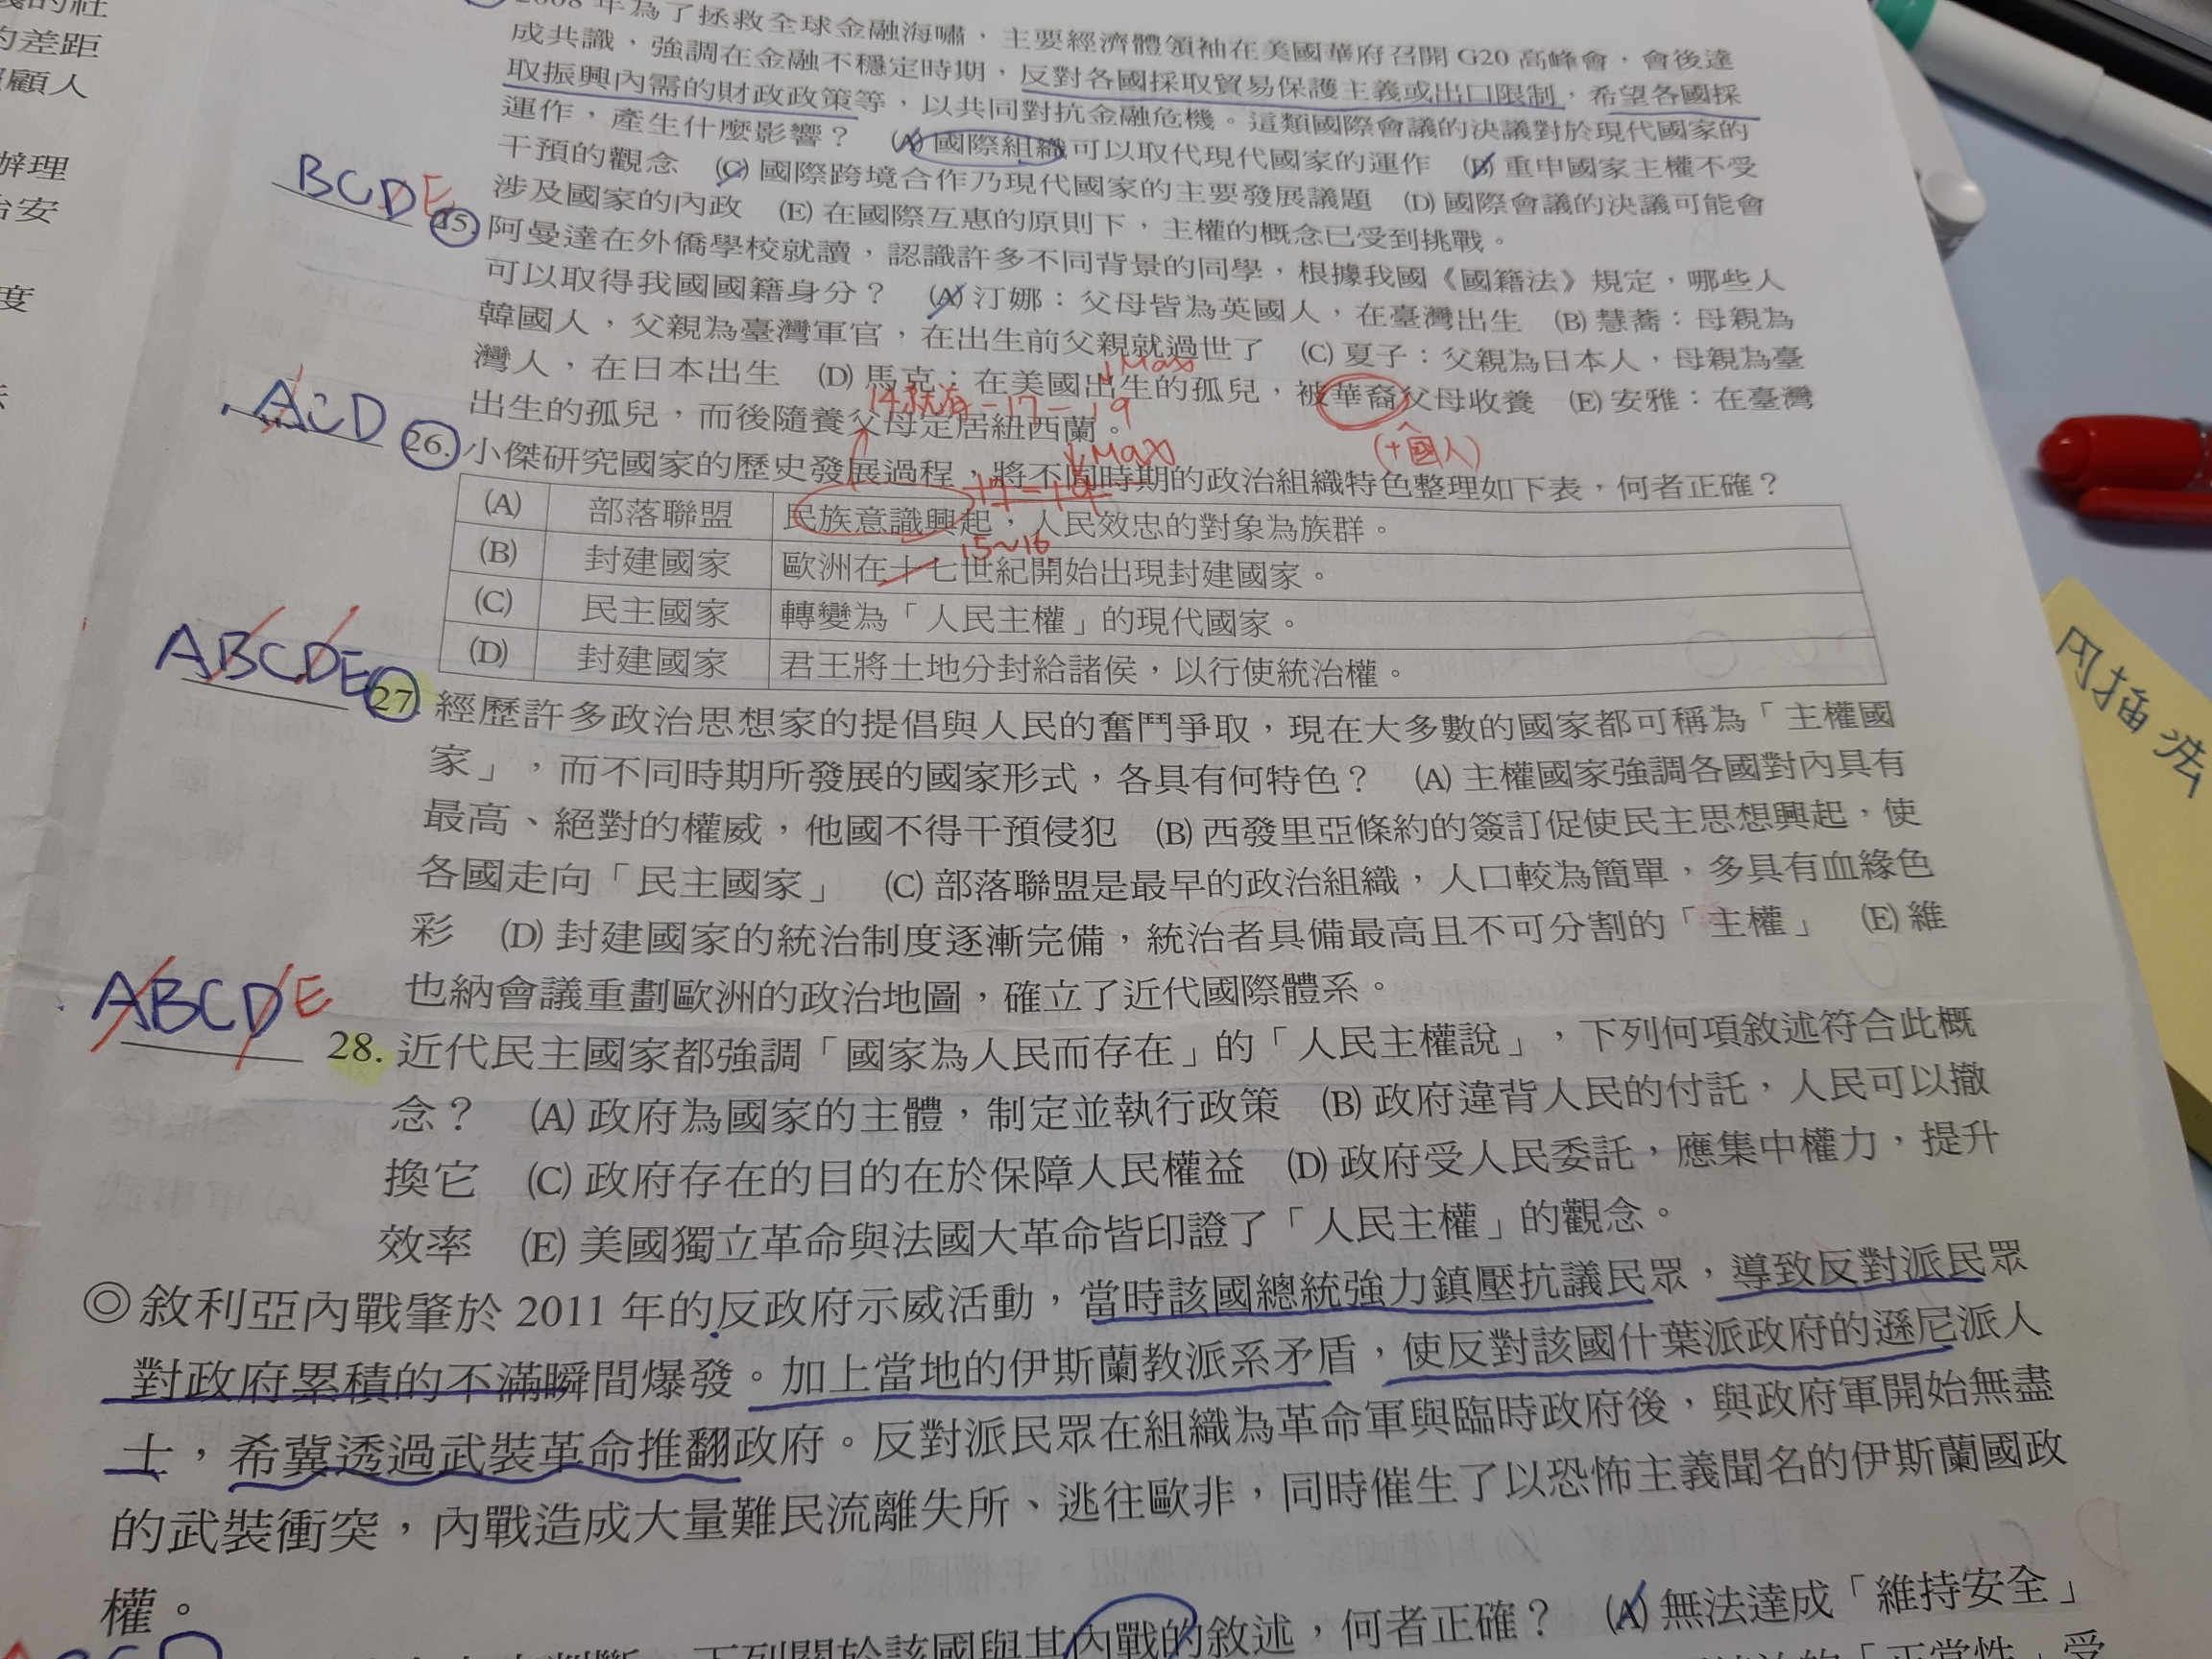 2008 年為了拯救全球金融海嘯，主要經濟體領袖在美國華府召開 G20 高峰會，會後達
成共識，強調在金融不穩定時期，反對各國採取貿易保護主義或出口限制，希望各國採
取振興內需的財政政策等，以共同對抗金融危機。這類國際會議的決議對於現代國家的
運作，產生什麼影響？ (A) 國際組織可以取代現代國家的運作 (B) 重申國家主權不受
干預的觀念 (C) 國際跨境合作乃現代國家的主要發展議題 (D) 國際會議的決議可能會
涉及國家的內政 (E) 在國際互惠的原則下，主權的概念已受到挑戰。
BCDE
25. 阿曼達在外僑學校就讀，認識許多不同背景的同學，根據我國《國籍法》規定，哪些人
可以取得我國國籍身分？ (A) 汀娜：父母皆為英國人，在臺灣出生 (B) 慧喬：母親為
韓國人，父親為臺灣軍官，在出生前父親就過世了 (C) 夏子：父親為日本人，母親為臺
灣人，在日本出生 (D) 馬克：在美國出生的孤兒，被華裔父母收養 (E) 安雅：在臺灣
出生的孤兒，而後隨養父母定居紐西蘭。
Max
14就有-17-19
(+國人)
ACD
26. 小傑研究國家的歷史發展過程，將不同時期的政治組織特色整理如下表，何者正確？
Max
17-19
(A) 部落聯盟 民族意識興起，人民效忠的對象為族群。
15~16
(B) 封建國家 歐洲在十七世紀開始出現封建國家。
(C) 民主國家 轉變為「人民主權」的現代國家。
(D) 封建國家 君王將土地分封給諸侯，以行使統治權。
ABCDE
27. 經歷許多政治思想家的提倡與人民的奮鬥爭取，現在大多數的國家都可稱為「主權國
家」，而不同時期所發展的國家形式，各具有何特色？ (A) 主權國家強調各國對內具有
最高、絕對的權威，他國不得干預侵犯 (B) 西發里亞條約的簽訂促使民主思想興起，使
各國走向「民主國家」 (C) 部落聯盟是最早的政治組織，人口較為簡單，多具有血緣色
彩 (D) 封建國家的統治制度逐漸完備，統治者具備最高且不可分割的「主權」 (E) 維
也納會議重劃歐洲的政治地圖，確立了近代國際體系。
ABCDE
28. 近代民主國家都強調「國家為人民而存在」的「人民主權說」，下列何項敘述符合此概
念？ (A) 政府為國家的主體，制定並執行政策 (B) 政府違背人民的付託，人民可以撤
換它 (C) 政府存在的目的在於保障人民權益 (D) 政府受人民委託，應集中權力，提升
效率 (E) 美國獨立革命與法國大革命皆印證了「人民主權」的觀念。
◎敘利亞內戰肇於 2011 年的反政府示威活動，當時該國總統強力鎮壓抗議民眾，導致反對派民眾
對政府累積的不滿瞬間爆發。加上當地的伊斯蘭教派系矛盾，使反對該國什葉派政府的遜尼派人
士，希冀透過武裝革命推翻政府。反對派民眾在組織為革命軍與臨時政府後，與政府軍開始無盡
的武裝衝突，內戰造成大量難民流離失所、逃往歐非，同時催生了以恐怖主義聞名的伊斯蘭國政
權。
下列關於該國與其內戰的敘述，何者正確？ (A) 無法達成「維持安全」
「正當性」受
的社
的差距
顧人
辦理
治安
度